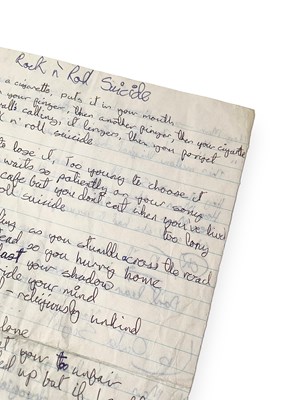 Rock n' Roll Suicide
a cigarette, puts it in your mouth
your finger, then another finger, then your cigarette
calling, it lingers, then you forget
n' roll suicide
to lose it, too young to choose it
waits so patiently on your song
cafe but you dont eat when you've lived
too long
roll suicide
so you stumble across the road
so you hurry home
your shadow
your mind
religiously unkind
alone
your too unfair
up but